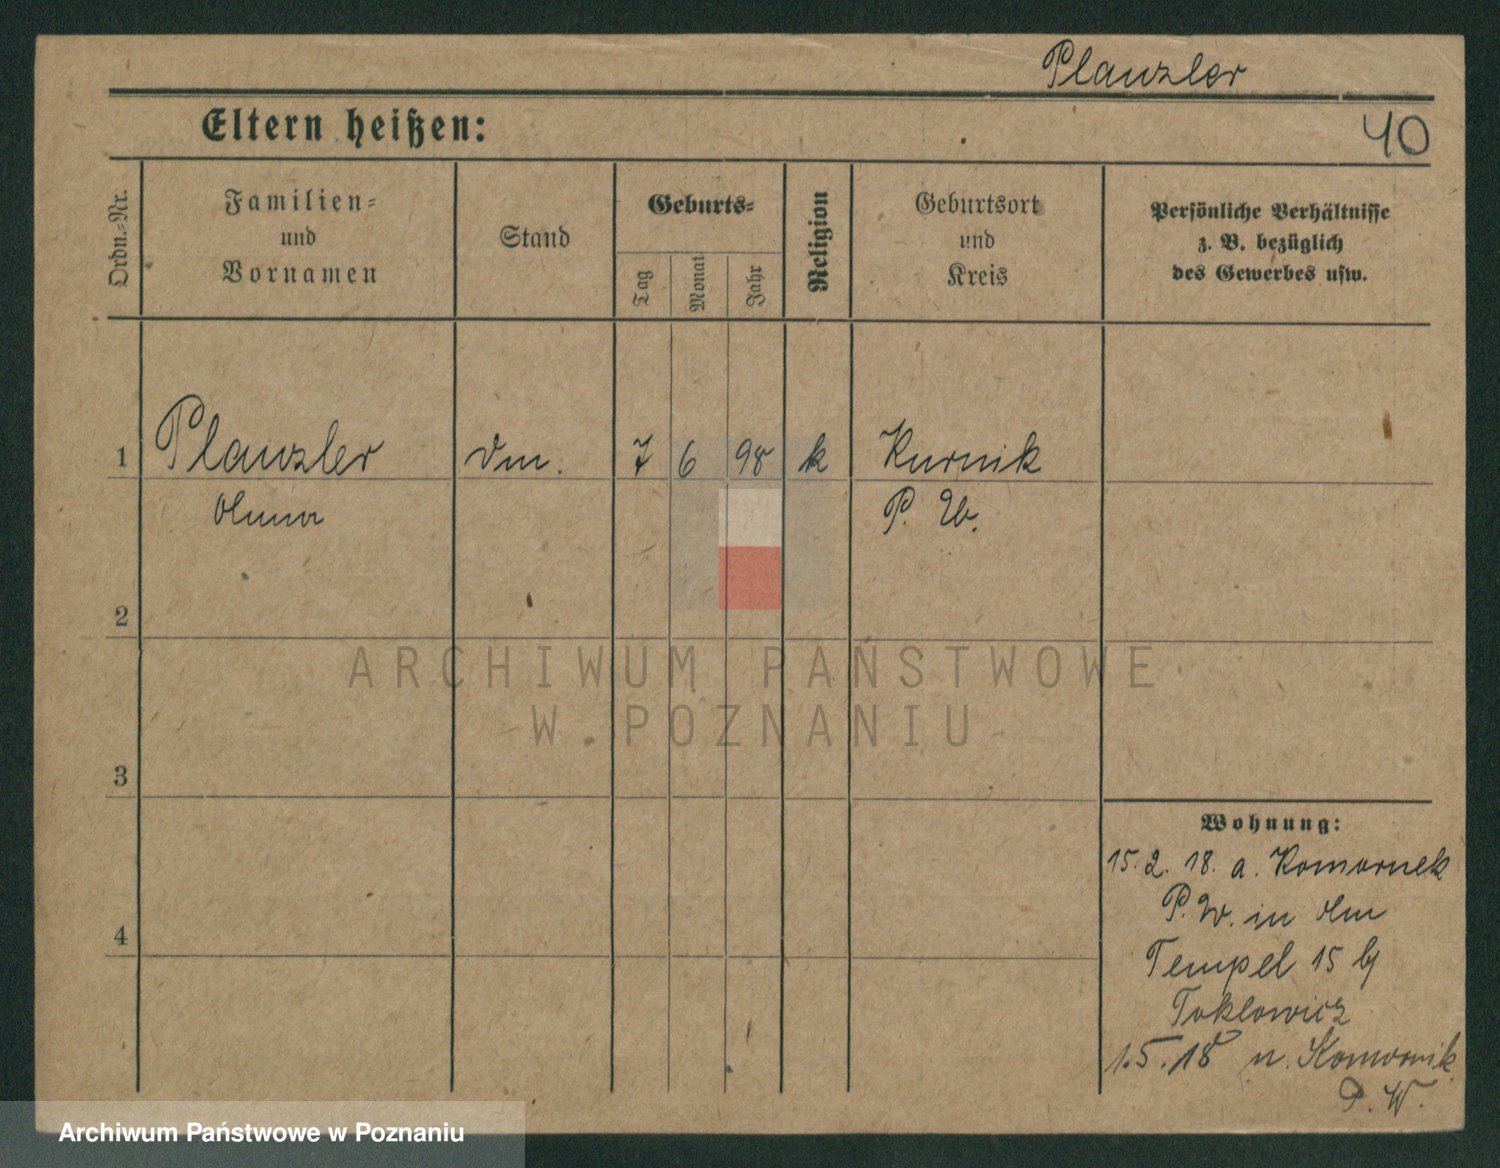 Plauzler
Eltern heißen:
40
Ordn.-Nr.
Familien-
und
Vornamen
Stand
Geburts-
Tag
Monat
Jahr
Religion
Geburtsort
und
Kreis
Persönliche Verhältnisse
z. B. bezüglich
des Gewerbes usw.
1
Plauzler
7 6 98 k
Kurnik
P.
2
ARCHIWUM PAŃSTWOWE
W POZNANIU
3
Wohnung:
15.2.18. a. Komornek
P. W. in
4
Tempel 15 b/
1.5.18 n. Komornik
P. W.
Archiwum Państwowe w Poznaniu